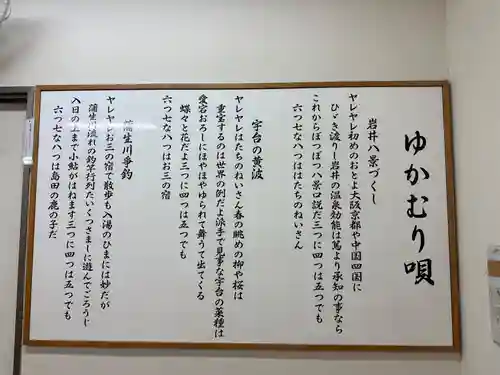 ゆかむり唄
岩井八景づくし
ヤレヤレ初めのおとよ大阪京都や中国四国に
ひゞき渡りし岩井の温泉効能は萬より承知の事なら
これからぼつぼつ八景口説だ三つに四つは五つでも
六つ七な八つははたちのねいさん
宇台の黄波
ヤレヤレはたちのねいさん春の眺めの柳や桜は
重宝するのは世界の例だよ派手で見事な宇台の菜種は
愛宕おろしにほやほやゆられて舞うて出てくる
蝶々と花だよ三つに四つは五つでも
六つ七な八つはお三の宿
蒲生川争釣
ヤレヤレお三の宿で散歩も入湯のひまには妙だが
蒲生川流れの釣竿行列たいくつさましに遊んでごろうじ
入日の上まで小鮎がはねます三つに四つは五つでも
六つ七な八つは島田の鹿の子だ